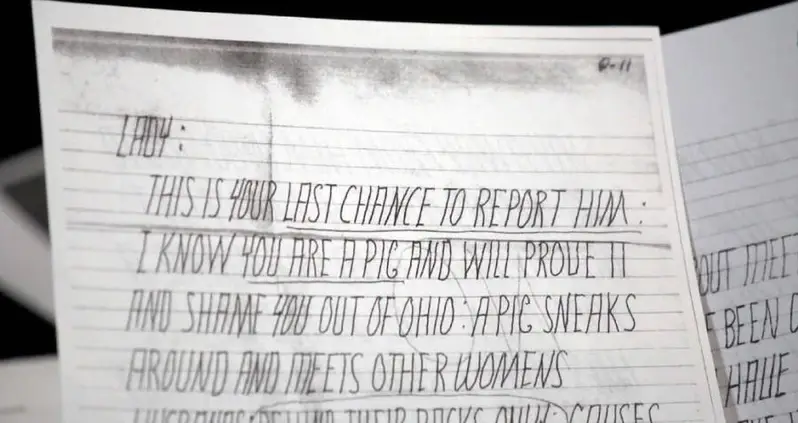 Q-11
LADY:
THIS IS YOUR LAST CHANCE TO REPORT HIM:
I KNOW YOU ARE A PIG AND WILL PROVE IT
AND SHAME YOU OUT OF OHIO: A PIG SNEAKS
AROUND AND MEETS OTHER WOMENS
HUSBANDS BEHIND THEIR BACKS ONLY: CAUSES
OUT MEET
BEEN
HAVE